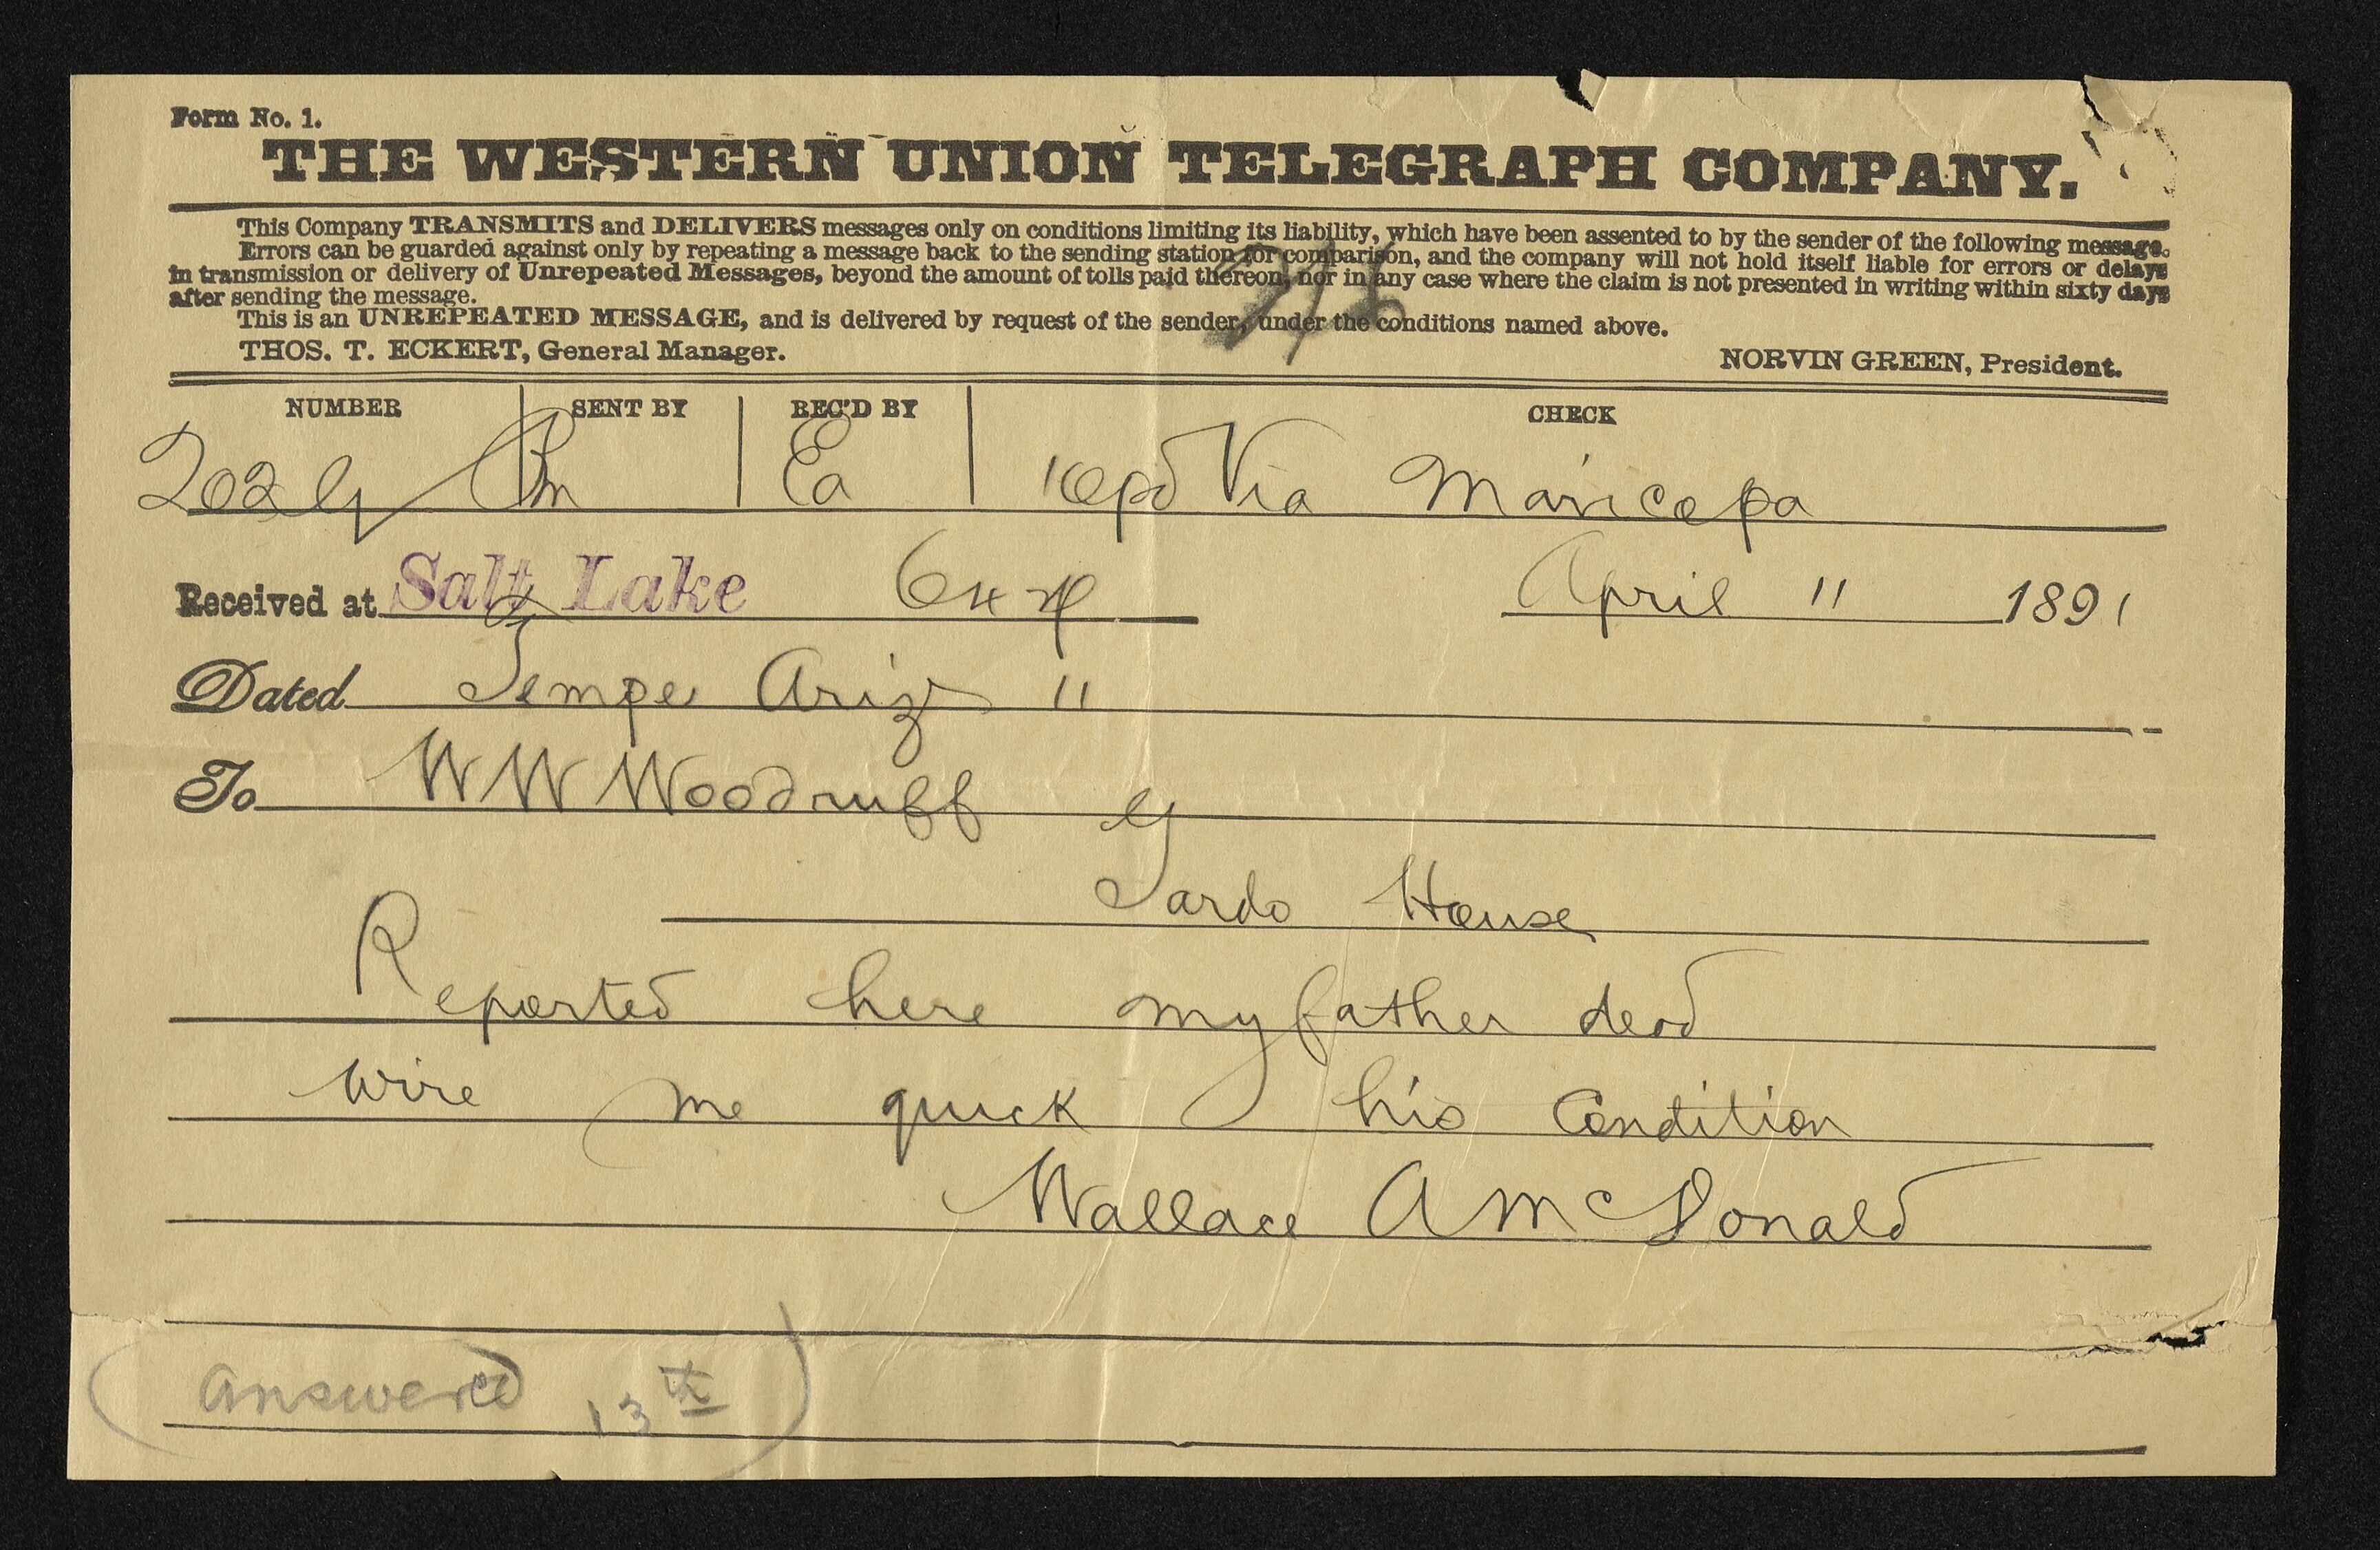 Form No. 1.
THE WESTERN UNION TELEGRAPH COMPANY.
This Company TRANSMITS and DELIVERS messages only on conditions limiting its liability, which have been assented to by the sender of the following message.
Errors can be guarded against only by repeating a message back to the sending station for comparison, and the company will not hold itself liable for errors or delays
in transmission or delivery of Unrepeated Messages, beyond the amount of tolls paid thereon, nor in any case where the claim is not presented in writing within sixty days
after sending the message.
This is an UNREPEATED MESSAGE, and is delivered by request of the sender, under the conditions named above.
THOS. T. ECKERT, General Manager. NORVIN GREEN, President.
NUMBER SENT BY REC'D BY CHECK
202 Ea 10 pd Via Maricopa
Received at Salt Lake April 11 1891
Dated Tempe Ariz 11
To W W Woodruff
Gardo House
Reported here my father dead
wire me quick his Condition
Wallace A McDonald
(answered 13th)